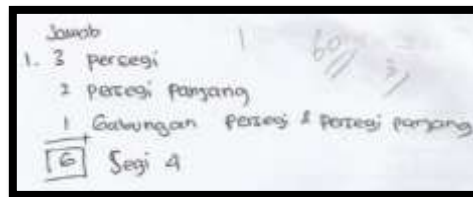 Jawab
1. 3 persegi
2 persegi panjang
1 Gabungan persegi & persegi panjang
6 Segi 4